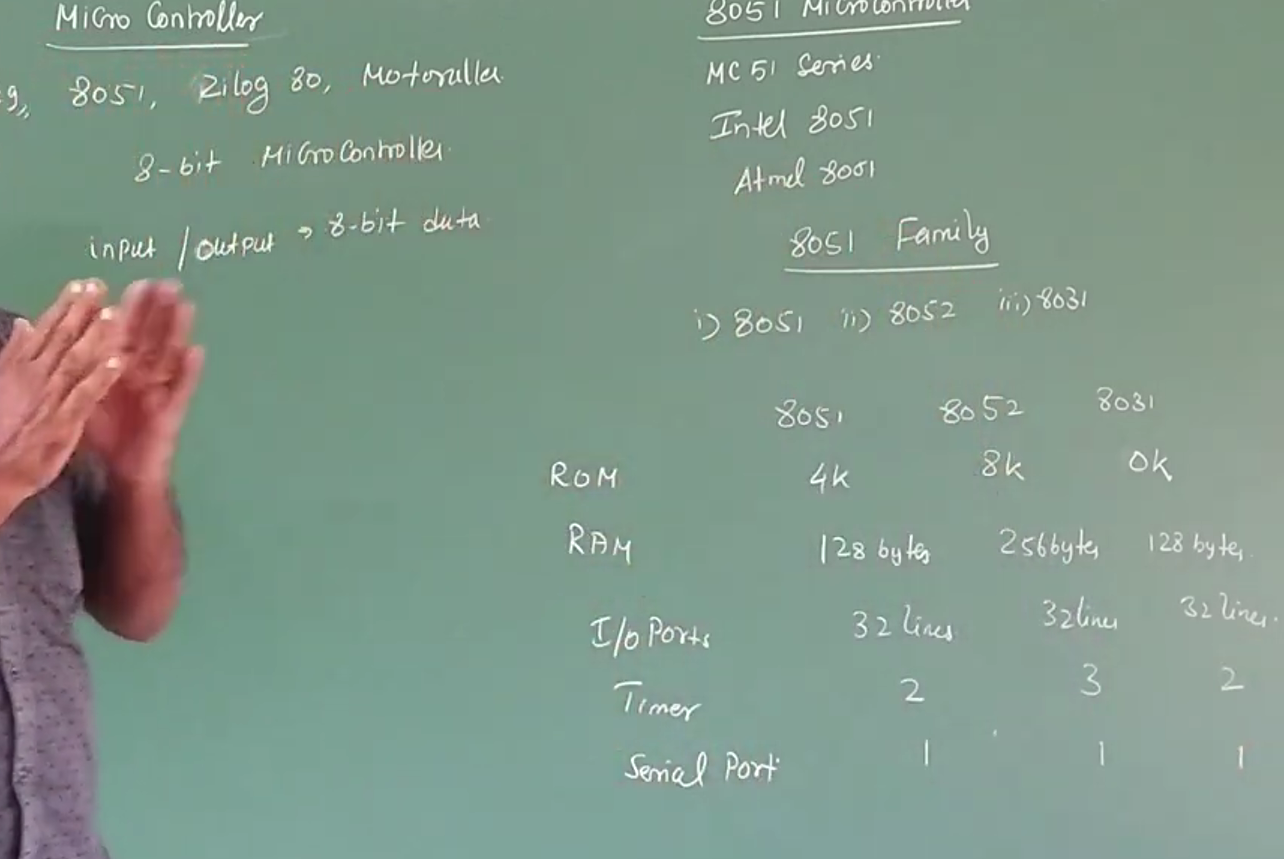 Micro Controller
eg,, 8051, Zilog 80, Motoroller
8-bit MicroController.
input / output → 8-bit data
8051 Microcontroller
MC 51 Series.
Intel 8051
Atmel 8051
8051 Family
i) 8051 ii) 8052 iii) 8031
8051 8052 8031
ROM 4k 8k 0k
RAM 128 bytes 256bytes 128 bytes.
I/o Ports 32 lines 32lines 32 lines.
Timer 2 3 2
Serial Port 1 1 1